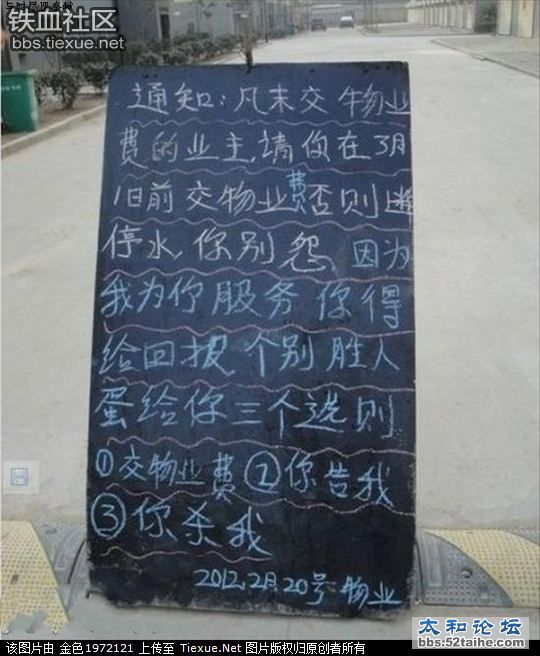 铁血社区
bbs.tiexue.net
通知:凡未交物业
费的业主,请你在3月
1日前交物业费否则
停水,你别怨,因为
我为你服务你得
给回报个别胜人
蛋给你三个选则
①交物业费②你告我
③你杀我
2012.2月.20号物业
太和论坛
bbs.52taihe.com
该图片由 金色1972121 上传至 Tiexue.Net 图片版权归原创者所有